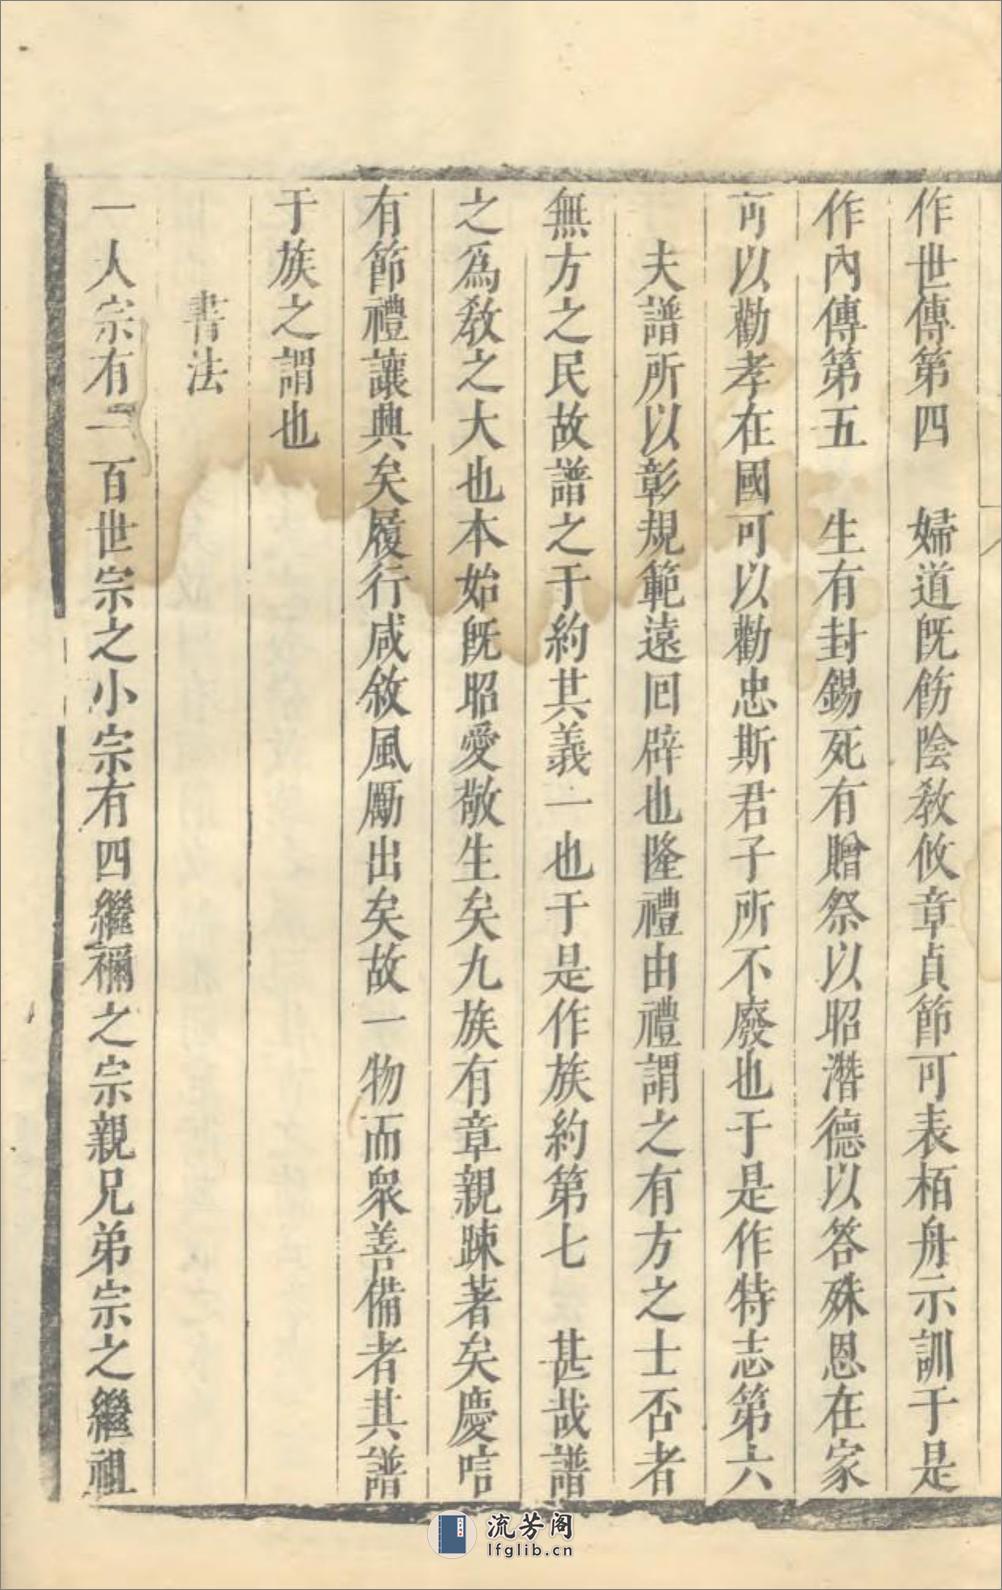 作世傳第四　婦道既飭陰敎攸章貞節可表栢舟示訓于是
作內傳第五　生有封錫死有贈祭以昭潛德以答殊恩在家
可以勸孝在國可以勸忠斯君子所不廢也于是作特志第六
夫譜所以彰規範遠回辟也隆禮由禮謂之有方之士否者
無方之民故譜之于約其義一也于是作族約第七　甚哉譜
之爲敎之大也本始旣昭愛敬生矣九族有章親踈著矣慶唁
有節禮讓興矣履行咸敘風勵出矣故一物而衆善備者其譜
于族之謂也
書法
一人宗有一百世宗之小宗有四繼禰之宗親兄弟宗之繼祖
流芳阁
lfglib.cn